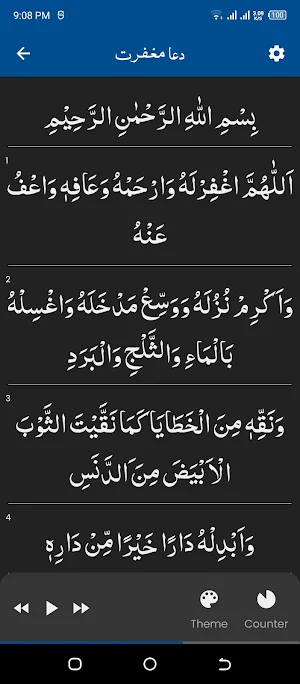 9:08 PM
3.09 K/S 100
دعا مغفرت
بِسْمِ اللهِ الرَّحْمٰنِ الرَّحِيْمِ
1
اَللّٰهُمَّ اغْفِرْلَهُ وَارْحَمْهُ وَعَافِهٖ وَاعْفُ
عَنْهُ
2
وَاَكْرِمْ نُزُلَهُ وَوَسِّعْ مَدْخَلَهُ وَاغْسِلْهُ
بِالْمَاءِ وَالثَّلْجِ وَالْبَرَدِ
3
وَنَقِّهٖ مِنَ الْخَطَايَا كَمَا نَقَّيْتَ الثَّوْبَ
الْاَبْيَضَ مِنَ الدَّنَسِ
4
وَاَبْدِلْهُ دَارًا خَيْرًا مِّنْ دَارِهٖ
Theme Counter